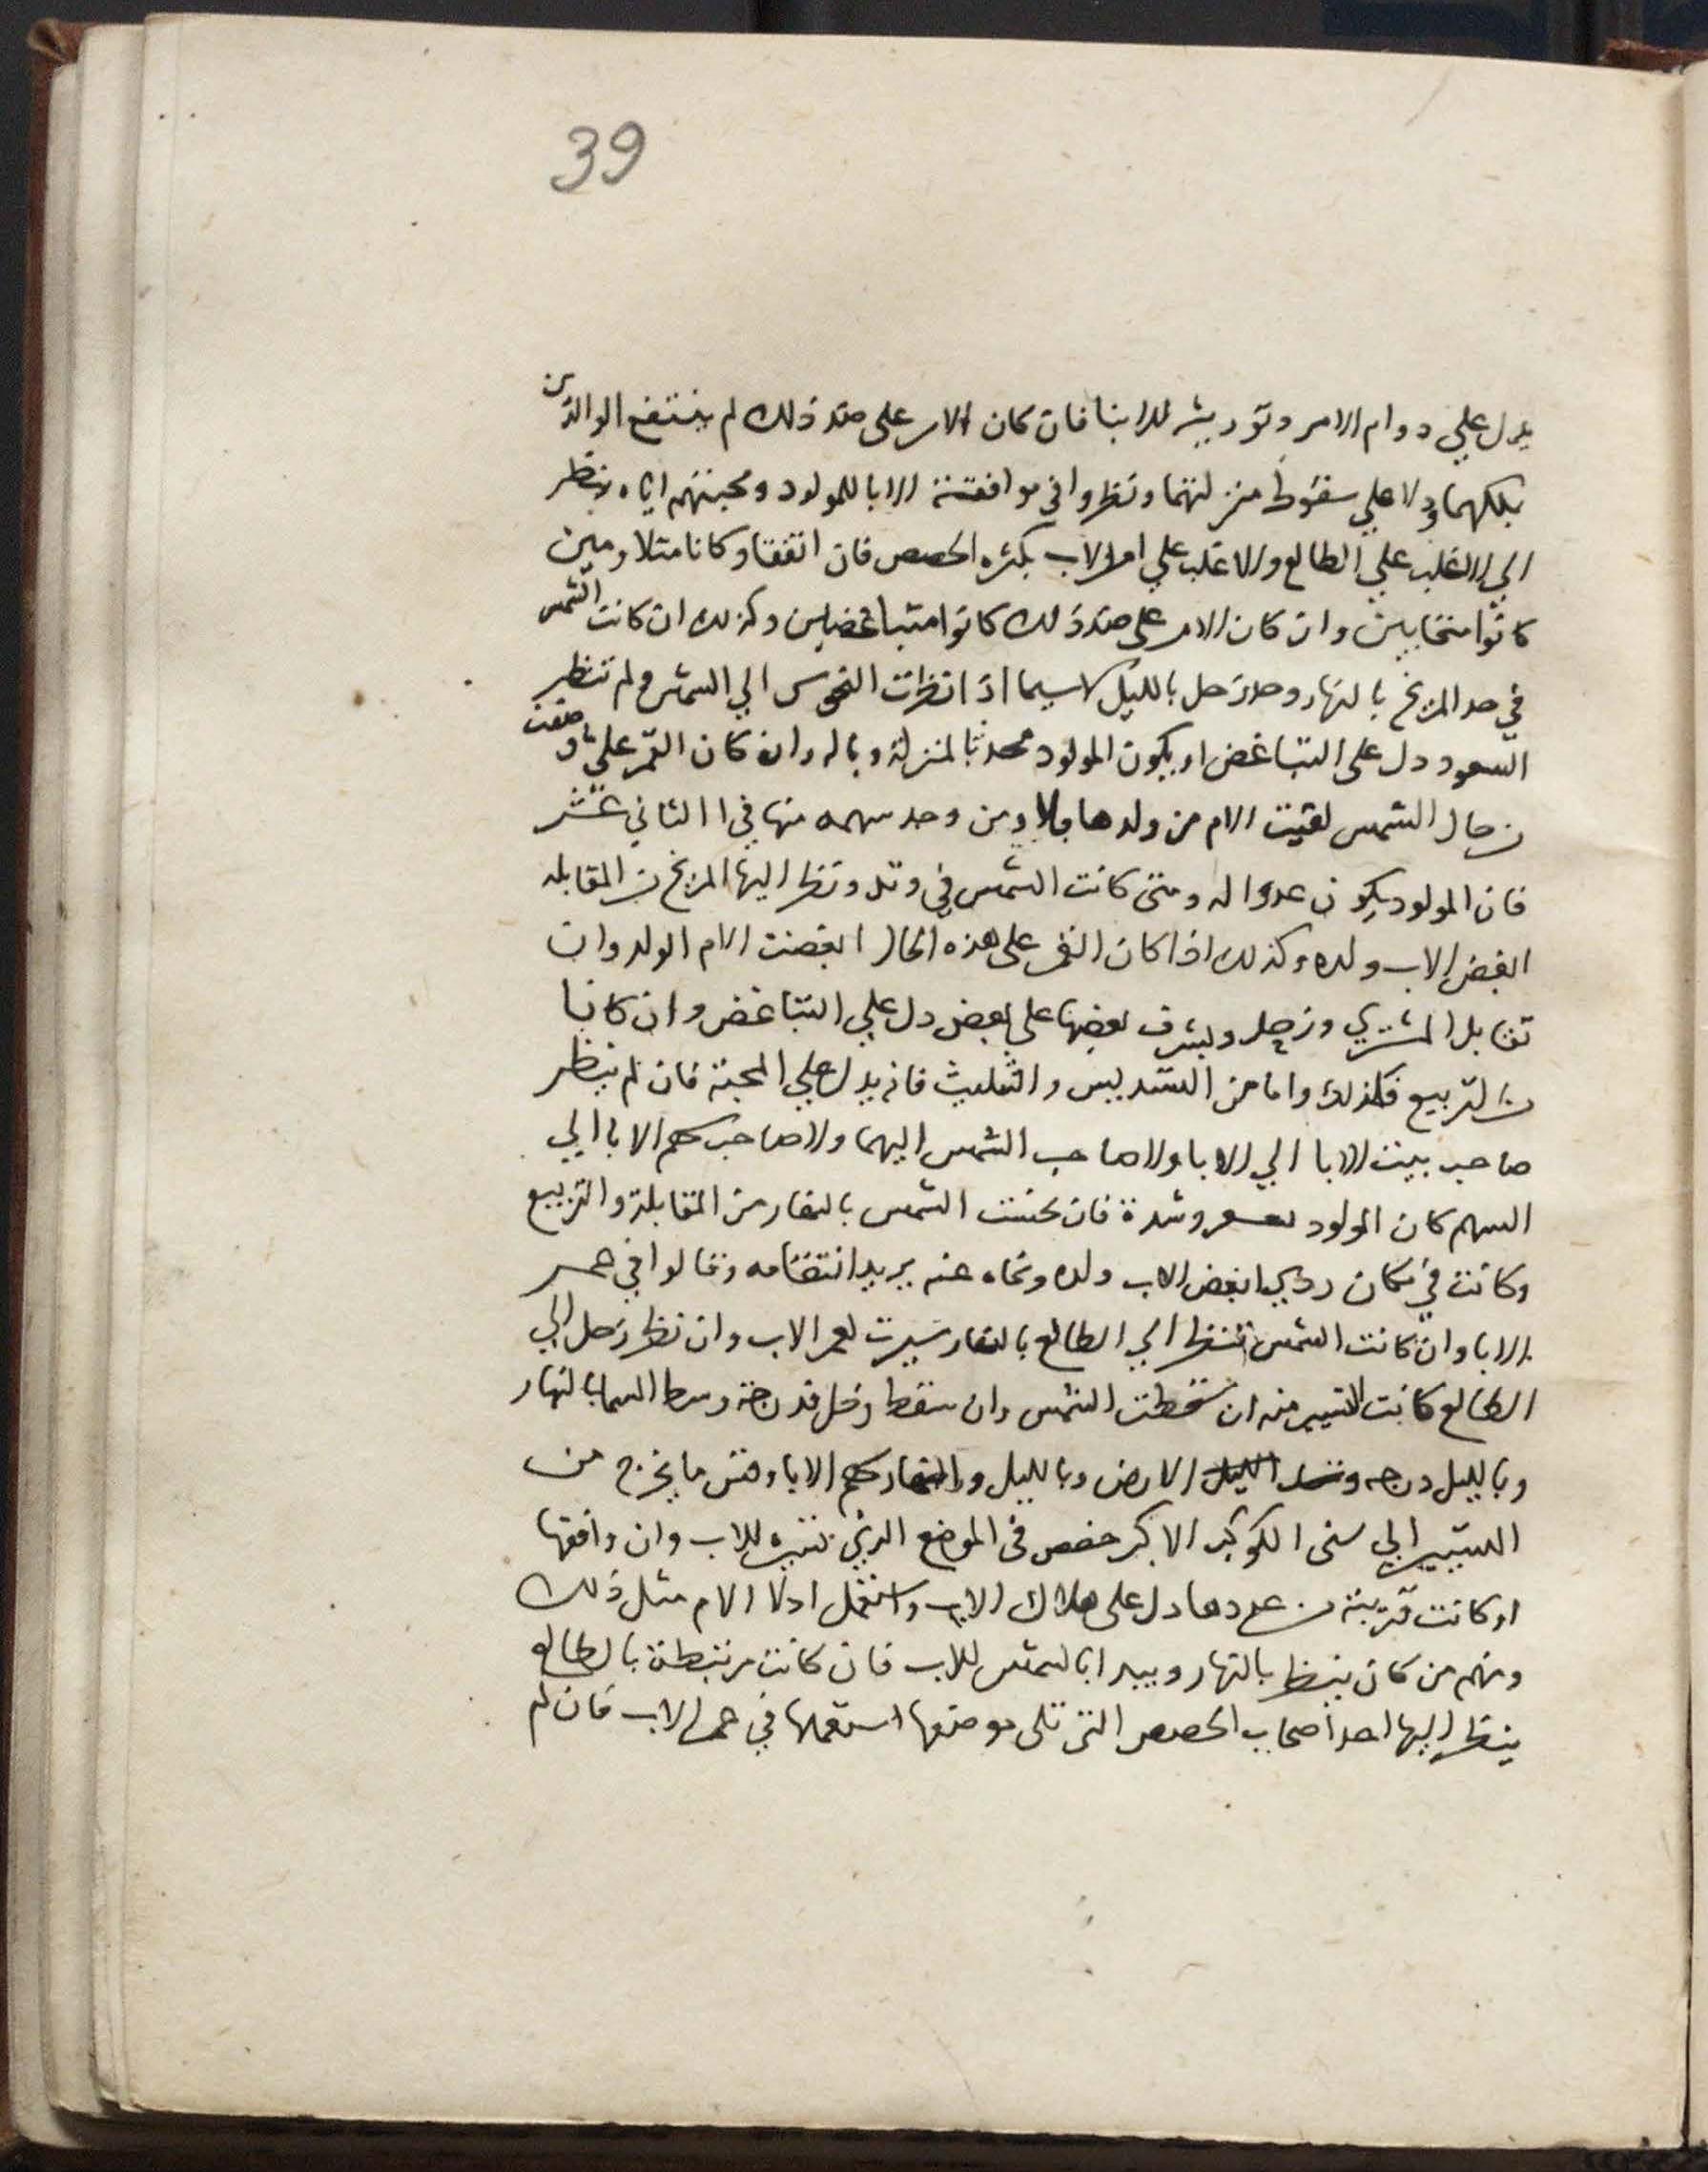 39
يدل علي دوام الامر وتوريثه للابنا فان كان الامر على ضد ذلك لم ينتفع الوالدين
بملكهما ودلا علي سقوط منزلتهما ونظروا في موافقتة الابا للمولود ومحبتهم اياه بنظر
الي الاغلب علي الطالع والاغلب علي امر الاب بكثره الحصص فان اتفقا وكانا متلاومين
كانوا متحابين وان كان الامر على ضد ذلك كانوا متباغضين وكذلك ان كانت الشمس
في حد المريخ بالنهار وحد زحل بالليل لاسيما اذا نظرت النحوس الي الشمس ولم تنظر
السعود دل على التباغض او يكون المولود محدثا لمنزلة وباله وان كان القمر علي ما وصفت
من حال الشمس لقيت الام من ولدها بلا ومن وجد سهمه منها في الثاني عشر
فان المولود يكون عدوا له ومتى كانت الشمس في وتد ونظر اليها المريخ من المقابله
ابغض الاب ولده وكذلك اذا كان القمر على هذه الحال ابغضت الام الولد وان
تقابل المشتري وزحل ويشرف بعضها على بعض دل علي التباغض وان كانا
من التربيع فكذلك واما من التسديس والتثليث فانه يدل علي المحبة فان لم ينظر
صاحب بيت الابا الي الابا ولا صاحب الشمس اليهما ولا صاحب سهم الابا الي
السهم كان المولود وشدة فان نحست الشمس بالنهار من المقابلة والتربيع
وكانت في مكان ردي ابغض الاب ولده ونحاه عنه يريد انتقامه وقالوا في عمر
الابا وان كانت الشمس تنظر الي الطالع بالنهار سيرت لعمر الاب وان نظر زحل الي
الطالع كانت التسيير منه ان سقطت الشمس وان سقط زحل فدرجة وسط السما بالنهار
وبالليل درجه وتد الارض وبالليل والنهار سهم الابا وقس ما يخرج من
التسيير الي سنى الكوكب الاكبر حصص في الموضع الذي تنتهي للاب وان وافقها
او كانت قريبة من عددها دل على هلاك الاب واستعمل ادلا الام مثل ذلك
ومنهم من كان ينظر بالنهار ويبدا بالشمس للاب فان كانت مرتبطة بالطالع
ينظر اليها احد اصحاب الحصص التي تلى موضعها استعملها في عمر الاب فان لم